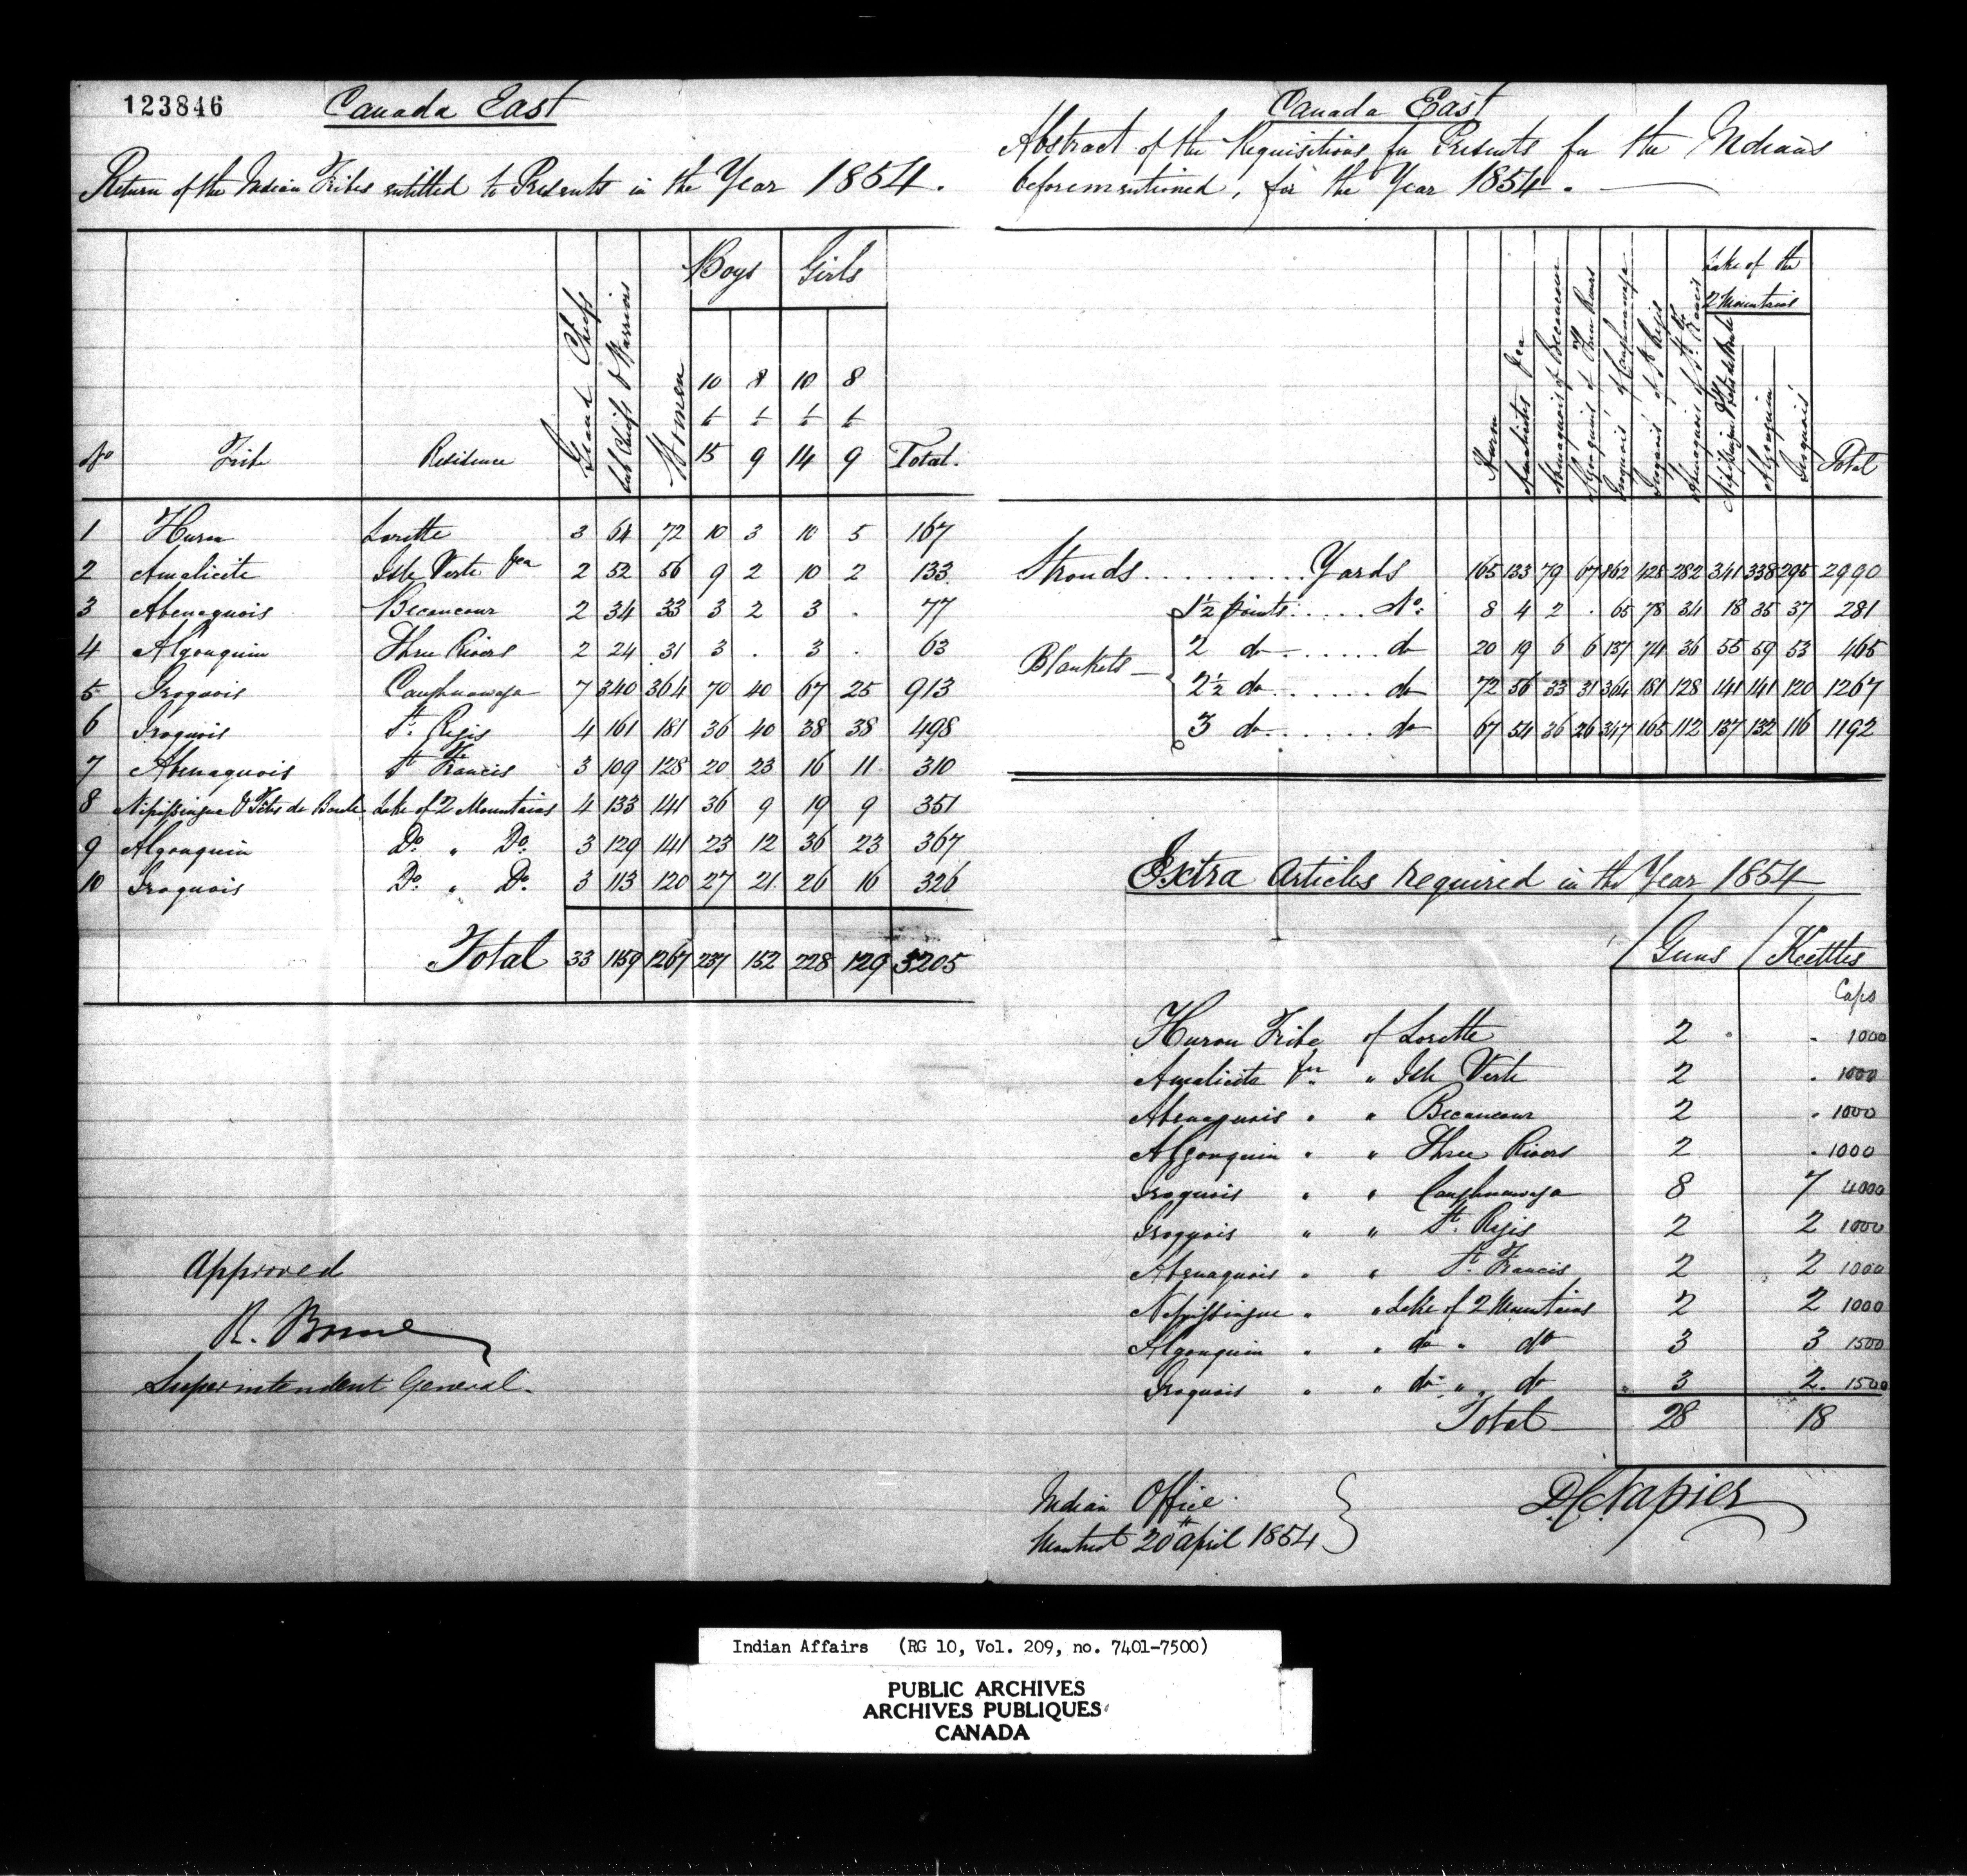 123846
Canada East
Return of the Indian Tribes entitled to Presents in the Year 1854.
No Tribe Residence Grand Chiefs Sub Chiefs & Warriors Women Boys 10 to 15 8 to 9 Girls 10 to 14 8 to 9 Total.
1 Huron Lorette 3 64 72 10 3 10 5 167
2 Amalicite Isle Verte &ca 2 52 56 9 2 10 2 133
3 Abenaquois Becancour 2 34 33 3 2 3 . 77
4 Algonquin Three Rivers 2 24 31 3 . 3 . 63
5 Iroquois Caughnawaga 7 340 364 70 40 67 25 913
6 Iroquois St. Regis 4 161 181 36 40 38 38 498
7 Abenaquois St. Francis 3 109 128 20 23 16 11 310
8 Nipissingue & Têtes de Boule Lake of 2 Mountains 4 133 141 36 9 19 9 351
9 Algonquin Do. " Do. 3 129 141 23 12 36 23 367
10 Iroquois Do. " Do. 3 113 120 27 21 26 16 326
Total 33 1159 1267 237 152 228 129 3205
Approved
R. Bruce
Superintendent General.
Canada East
Abstract of the Requisitions for Presents for the Indians
beforementioned, for the Year 1854.
Lake of the
2 Mountains
Huron Amalicites &ca Abenaquois of Becancour Algonquins of Three Rivers Iroquois of Caughnawaga Iroquois of St Regis Abenaquois of St. Francis Nipissingue & Têtes de Boule Algonquin Iroquois Total
Strouds.......... Yards 165 133 79 67 862 428 282 341 338 295 2990
1½ points..... No. 8 4 2 . 65 78 34 18 35 37 281
Blankets 2 do....... do 20 19 6 6 137 74 36 55 59 53 465
2½ do...... do 72 56 33 31 364 181 128 141 141 120 1267
3 do...... do 67 54 36 26 347 165 112 137 132 116 1192
Extra Articles required in the Year 1854
Guns Kettles
Caps
Huron Tribe of Lorette 2 . 1000
Amalicite &ca " Isle Verte 2 . 1000
Abenaquois " " Becancour 2 . 1000
Algonquin " " Three Rivers 2 . 1000
Iroquois " " Caughnawaga 8 7 4000
Iroquois " " St. Regis 2 2 1000
Abenaquois " " St. Francis 2 2 1000
Nipissingue " " Lake of 2 Mountains 2 2 1000
Algonquin " " do " do 3 3 1500
Iroquois " " do " do 3 2. 1500
Total 28 18
Indian Office.
Montreal 20th April 1854
D.C. Napier
Indian Affairs (RG 10, Vol. 209, no. 7401-7500)
PUBLIC ARCHIVES
ARCHIVES PUBLIQUES
CANADA